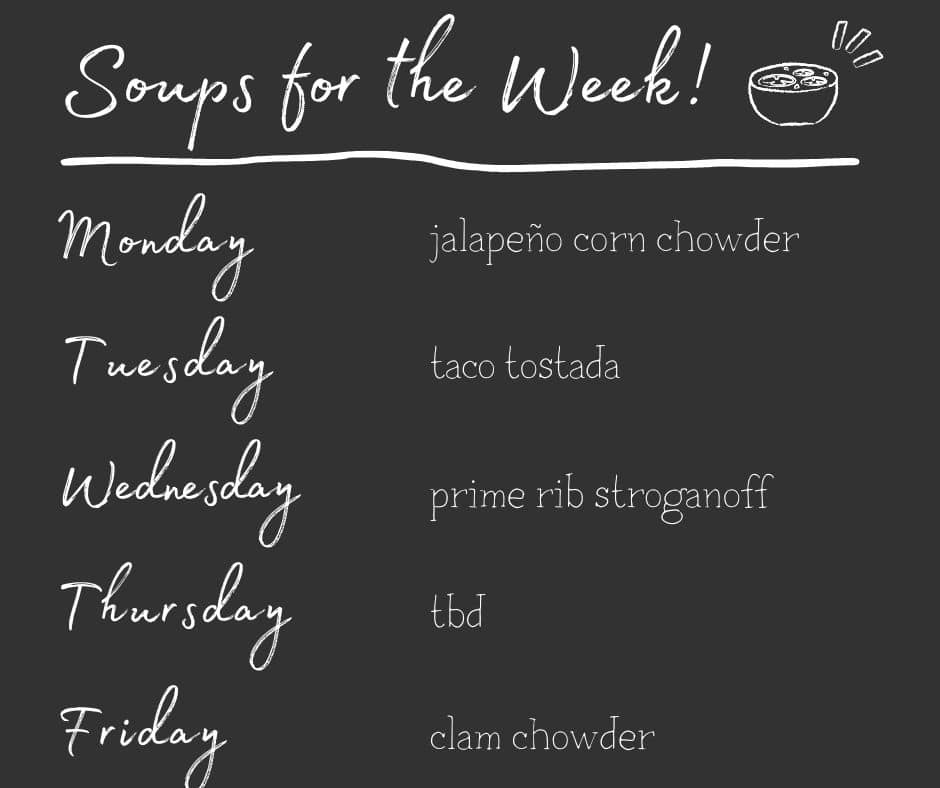 Soups for the Week!
Monday jalapeño corn chowder
Tuesday taco tostada
Wednesday prime rib stroganoff
Thursday tbd
Friday clam chowder